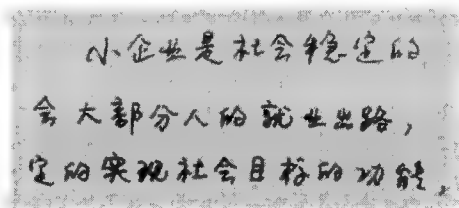 小企业是社会稳定的
会大部分人的就业出路，
定的实现社会目标的功能。